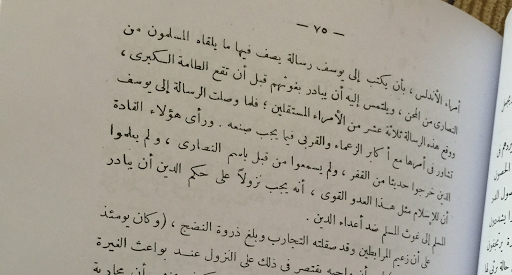 — ٧٥ —
أمراء الأندلس ، بأن يكتب إلى يوسف رسالة يصف فيها ما يلقاه المسلمون من
النصارى من المحن ، ويلتمس إليه أن يبادر بغوثهم قبل أن تقع الطامة الكبرى ،
ووقع هذه الرسالة ثلاثة عشر من الأمراء المستقلين ؛ فلما وصلت الرسالة إلى يوسف
تشاور فى أمرها مع أكابر الزعماء والقربى فيما يجب صنعه . ورأى هؤلاء القادة
الذين خرجوا حديثا من القفر ، ولم يسمعوا من قبل باسم النصارى ، ولم يعلموا
أن للإسلام مثل هذا العدو القوى ، أنه يجب نزولاً على حكم الدين أن يبادر
المسلم إلى غوث المسلم ضد أعداء الدين .
على أن زعيم المرابطين وقد صقلته التجارب وبلغ ذروة النضج ، (وكان يومئذ
واجبه يقتصر فى ذلك على النزول عند بواعث الغيرة
أن محاربة